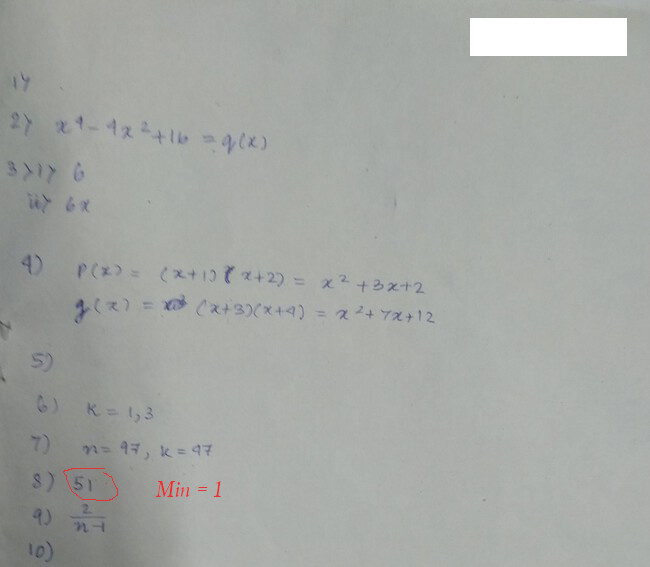 1)
2) x⁴-4x²+16 = g(x)
3) i) 6
ii) 6x
4) p(x) = (x+1)(x+2) = x²+3x+2
g(x) = (x+3)(x+4) = x²+7x+12
5)
6) K = 1,3
7) n=47, k=47
8) 51 Min = 1
9) 2/(n-1)
10)